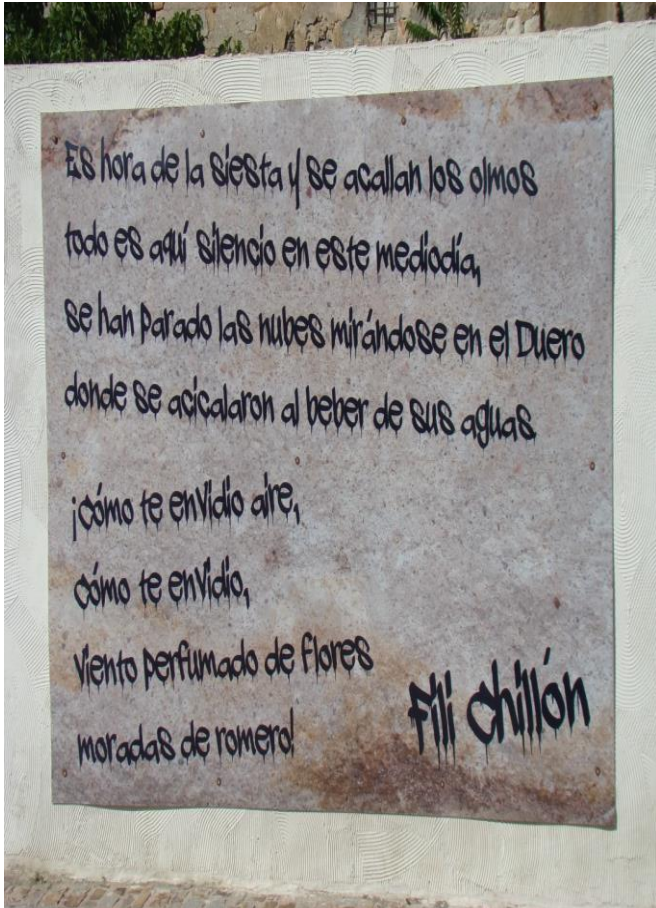 Es hora de la siesta y se acallan los olmos
todo es aquí silencio en este mediodía,
se han parado las nubes mirándose en el Duero
donde se acicalaron al beber de sus aguas.
¡cómo te envidio aire,
cómo te envidio,
viento perfumado de flores
moradas de romero!
Fili Chillón